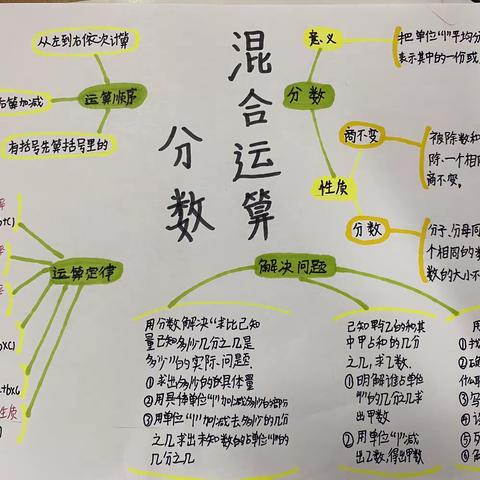 从左到右依次计算
后算加减
运算顺序
有括号先算括号里的
混合运算
分数
意义
把单位"1"平均分
表示其中的一份或
分数
商不变
被除数和
除,一个相
商不变。
性质
分数
分子、分母同
个相同的数
数的大小不
运算定律
解决问题
用分数解决"求比已知
量已知多/少几分之几是
多少"的实际问题.
①求出多/少的具体量
②用具体单位"1"加/减多/少的部分
③用单位"1"加/减去多/少的几分
之几求出未知数的占单位"1"的
几分之几
已知甲乙的和其
中甲占和的几分
之几,求乙数.
①明解谁占单位
"1"的几分之几求
出甲数
②用单位"1"减
出乙数,得出甲数
用
①找
②确
什么取
③写
④设
⑤列
⑥解